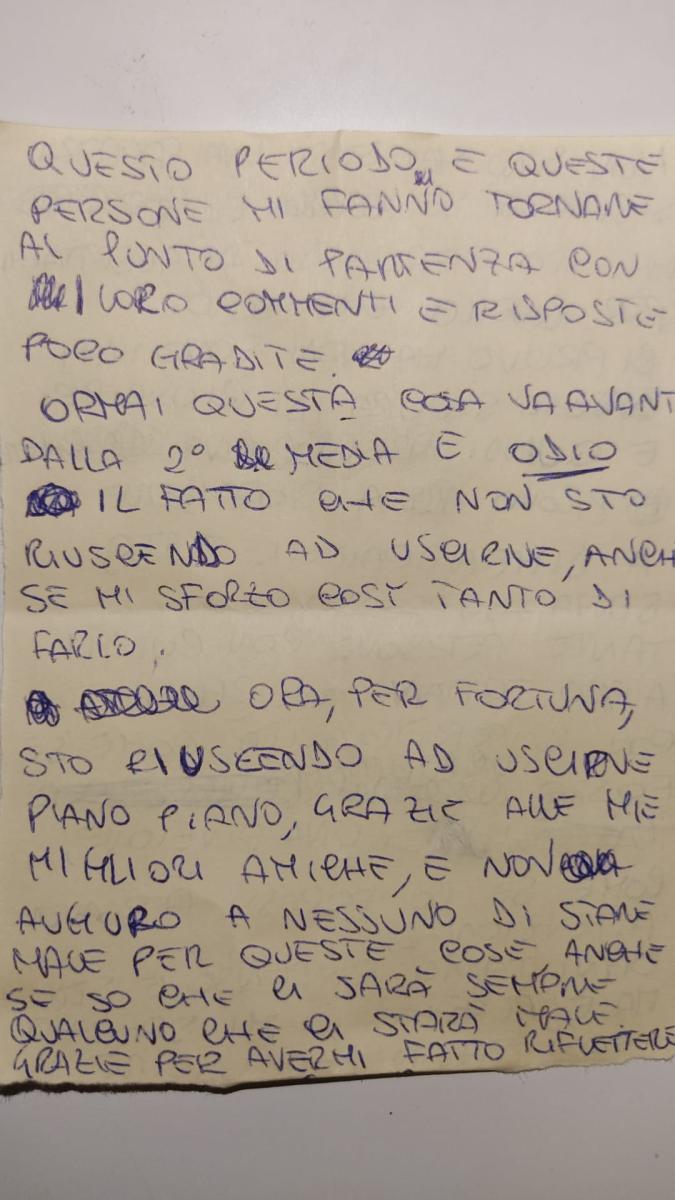 QUESTO PERIODO E QUESTE
PERSONE MI FANNO TORNARE
AL PUNTO DI PARTENZA CON
I LORO COMMENTI E RISPOSTE
POCO GRADITE.
ORMAI QUESTA COSA VA AVANT
DALLA 2° MEDIA E ODIO
IL FATTO CHE NON STO
RIUSCENDO AD USCIRNE, ANCH
SE MI SFORZO COSÌ TANTO DI
FARLO.
ORA, PER FORTUNA,
STO RIUSCENDO AD USCIRNE
PIANO PIANO, GRAZIE ALLE MIE
MIGLIORI AMICHE, E NON
AUGURO A NESSUNO DI STARE
MALE PER QUESTE COSE, ANCHE
SE SO CHE CI SARÀ SEMPRE
QUALCUNO CHE CI STARÀ MALE.
GRAZIE PER AVERMI FATTO RIFLETTERE